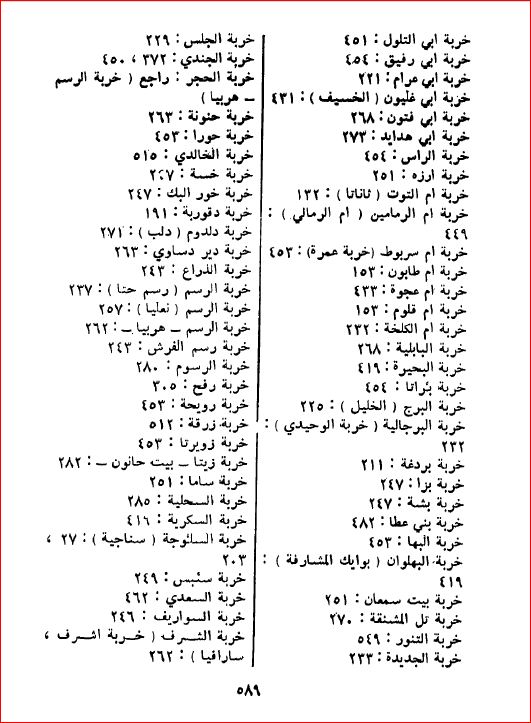 خربة ابي التلول : ٤٥١
خربة ابي رفيق : ٤٥٤
خربة ابي عرام : ٢٢١
خربة ابي غليون ( الخسيف ) : ٤٣١
خربة ابي فتون : ٢٦٨
خربة ابي هدايد : ٢٧٣
خربة الراس : ٤٥٤
خربة ارزه : ٢٥١
خربة ام التوت ( ثاناتا ) : ١٣٢
خربة ام الرمامين ( ام الرمالي ) :
٤٤٩
خربة ام سربوط (خربة عمرة) : ٤٥٣
خربة ام طابون : ١٥٣
خربة ام عجوة : ٤٣٣
خربة ام قلوم : ١٥٣
خربة ام الكلخة : ٢٣٢
خربة البابلية : ٢٦٨
خربة البحيرة : ٤١٩
خربة بتراتا : ٤٥٤
خربة البرج ( الخليل ) : ٢٢٥
خربة البرجالية ( خربة الوحيدي ) :
٢٣٢
خربة بردغة : ٢١١
خربة بزا : ٢٤٧
خربة بشة : ٢٤٧
خربة بني عطا : ٤٨٢
خربة البها : ٤٥٣
خربة البهلوان ( بوايك المشارفة ) :
٤١٩
خربة بيت سمعان : ٢٥١
خربة تل المشنقة : ٢٧٠
خربة التنور : ٥٤٩
خربة الجديدة : ٢٣٣
خربة الجلس : ٢٢٩
خربة الجندي : ٣٧٢ ، ٤٥٠
خربة الحجر : راجع ( خربة الرسم
ــ هربيا )
خربة حنونة : ٢٦٣
خربة حورا : ٤٥٣
خربة الخالدي : ٥١٥
خربة خسة : ٢٤٧
خربة خور البك : ٢٤٧
خربة دقوربة : ١٩١
خربة دلدوم ( دلب ) : ٢٧١
خربة دير دساوي : ٢٦٣
خربة الذراع : ٢٤٣
خربة الرسم ( رسم حتا ) : ٢٣٧
خربة الرسم ( نعليا ) : ٢٥٧
خربة الرسم ــ هربيا ــ : ٢٦٢
خربة رسم الفرش : ٢٤٣
خربة الرسوم : ٢٨٠
خربة رفح : ٣٠٥
خربة رويحة : ٤٥٣
خربة زرقة : ٥١٢
خربة زوبرتا : ٤٥٣
خربة زيتا ــ بيت حانون ــ : ٢٨٢
خربة ساما : ٢٥١
خربة السحلية : ٢٨٥
خربة السكرية : ٤١٦
خربة السالوجة ( سناجية ) : ٢٧ ،
٢٠٣
خربة سنبس : ٢٤٩
خربة السعدي : ٤٦٢
خربة السواريف : ٢٤٦
خربة الشرف ( خربة اشرف ،
سارافيا ) : ٢٦٢
٥٨٩